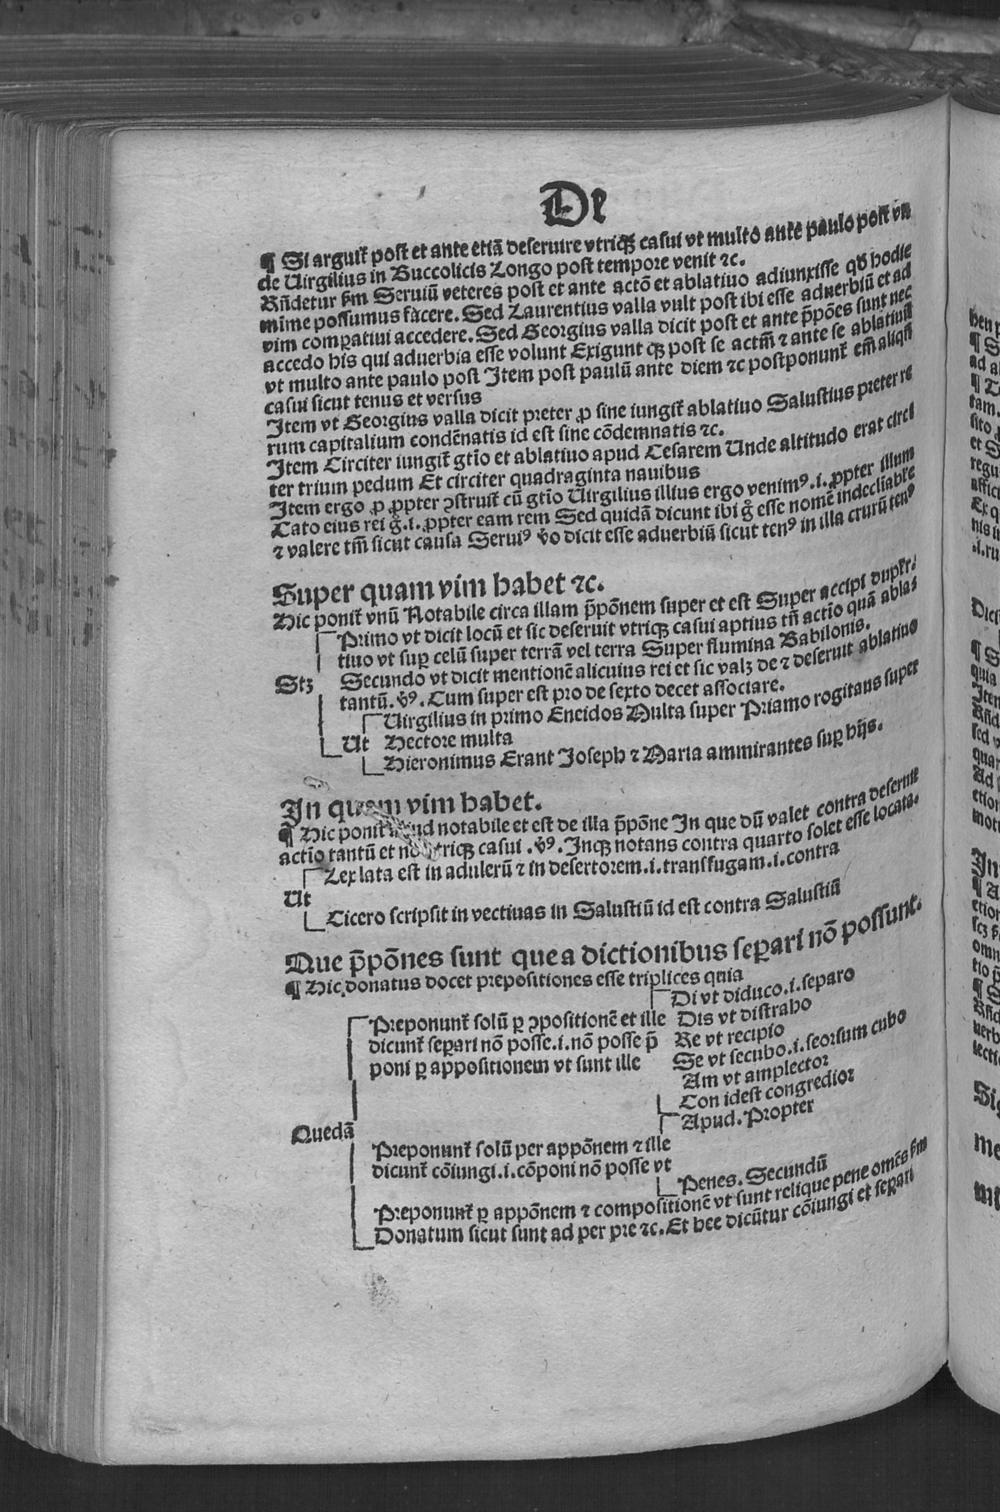 De
¶ Si arguit᷑ post et ante etiā deseruire vtriqꝫ casui vt multo ante paulo post vn
de Uirgilius in Buccolicis Longo post tempore venit ⁊c.
Rn̄detur ẜm Seruiū veteres post et ante actō et ablatiuo adiunxisse qđ hodie
mīme possumus facere. Sed Laurentius valla vult post ibi esse aduerbiū et ad
vim comꝑatiui accedere. Sed Georgius valla dicit post et ante p̄pōes sunt nec
accedo his qui aduerbia esse volunt Exigunt qꝫ post se actm̄ ⁊ ante se ablatiuū
vt multo ante paulo post Item post paulū ante diem ⁊c postponunt᷑ em̄ aliqn̄
casui sicut tenus et versus
Item vt Georgius valla dicit preter ꝓ sine iungit᷑ ablatiuo Salustius preter re
rum capitalium condēnatis id est sine cōdemnatis ⁊c.
Item Circiter iungit᷑ gtīo et ablatiuo apud Cesarem Unde altitudo erat circi
ter trium pedum Et circiter quadraginta nauibus
Item ergo ꝓ ꝓpter ꝯstruit᷑ cū gtīo Uirgilius illius ergo venimꝰ .i. ꝓpter illum
Cato eius rei g̊ .i. ꝓpter eam rem Sed quidā dicunt ibi g̊ esse nomē indeclīabile
⁊ valere tm̄ sicut causa Seruiꝰ v̊o dicit esse aduerbiū sicut tenꝰ in illa crurū tenꝰ
Super quam vim habet ⁊c.
Hic ponit᷑ vnū Notabile circa illam p̄pōnem super et est Super accipi dupłr.
Primo vt dicit locū et sic deseruit vtriqꝫ casui aptius tn̄ actīo quā abla⸗
tiuo vt suꝑ celū super terrā vel terra Super flumina Babilonis.
Stꝫ Secundo vt dicit mentionē alicuius rei et sic valꝫ de ⁊ deseruit ablatiuo
tantū. v̓ꝰ. Cum super est pro de sexto decet associare.
Uirgilius in primo Eneidos Multa super Priamo rogitans super
Ut Hectore multa
Hieronimus Erant Joseph ⁊ Maria ammirantes suꝑ hijs.
In quam vim habet.
¶ Hic ponit᷑ notabile et est de illa p̄pōne In que dū valet contra deseruit
actīo tantū et nō vtriqꝫ casui .v̓ꝰ. Inqꝫ notans contra quarto solet esse locata.
Lex lata est in adulerū ⁊ in desertorem .i. transfugam .i. contra
Ut
Cicero scripsit in vectiuas in Salustiū id est contra Salustiū
Que p̄pōnes sunt que a dictionibus seꝑari nō possunt.
¶ Hic donatus docet prepositiones esse triplices quia
Di vt diduco .i. separo
Preponunt᷑ solū ꝑ ꝯpositionē et ille Dis vt distraho
dicunt᷑ seꝑari nō posse .i. nō posse p̄ Re vt recipio
poni ꝑ appositionem vt sunt ille Se vt secubo .i. seorsum cubo
Am vt amplector
Con idest congredior
Apud. Propter
Quedā
Preponunt᷑ solū per appōnem ⁊ ille
dicunt᷑ cōiungi .i. cōponi nō posse vt
Penes. Secundū
Preponunt᷑ ꝑ appōnem ⁊ compositionē vt sunt relique pene omēs ẜm
Donatum sicut sunt ad per pre ⁊c. Et hee dicūtur cōiungi et seꝑari